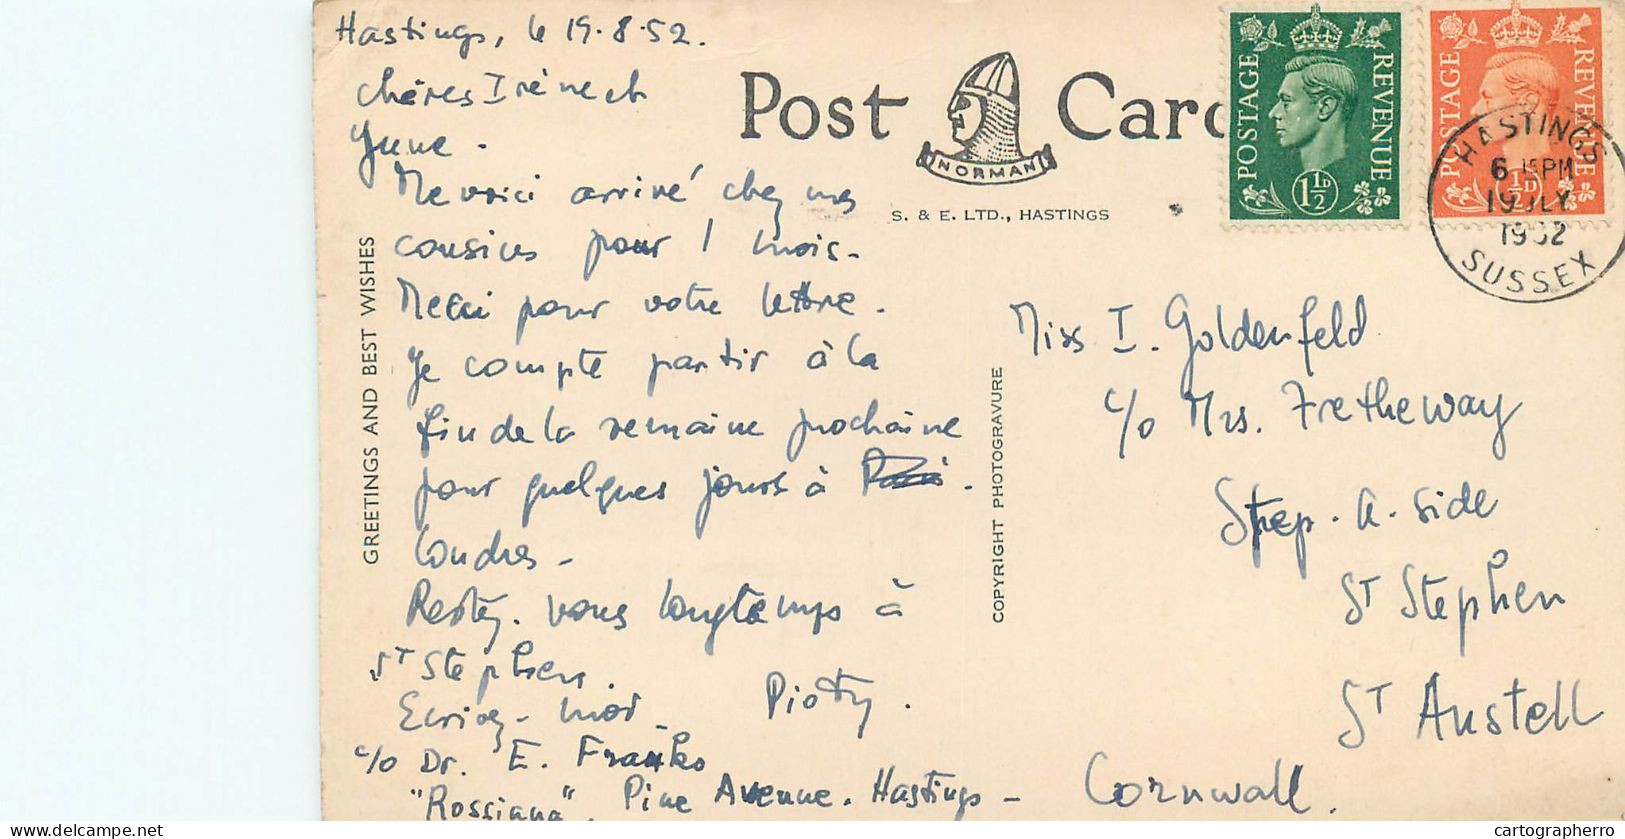 Hastings, le 19.8.52.
Chères Irène et
Yune.
Me voici arrivé chez mes
cousins pour 1 mois.
Merci pour votre lettre.
Je compte partir à la
fin de la semaine prochaine
pour quelques jours à
Londres.
Restez-vous longtemps à
St Stephen.
Ecrivez-moi.
Piotry.
c/o Dr. E. Franko
"Rossiana". Pine Avenue. Hastings
GREETINGS AND BEST WISHES
Post Card
NORMAN
S. & E. LTD., HASTINGS
COPYRIGHT PHOTOGRAVURE
POSTAGE REVENUE
1½D
POSTAGE REVENUE
½D
HASTINGS
6 15PM
19 JLY
1952
SUSSEX
Miss I. Goldenfeld
c/o Mrs. Fretheway
Step-a-side
St Stephen
St Austell
Cornwall.
cartographerro